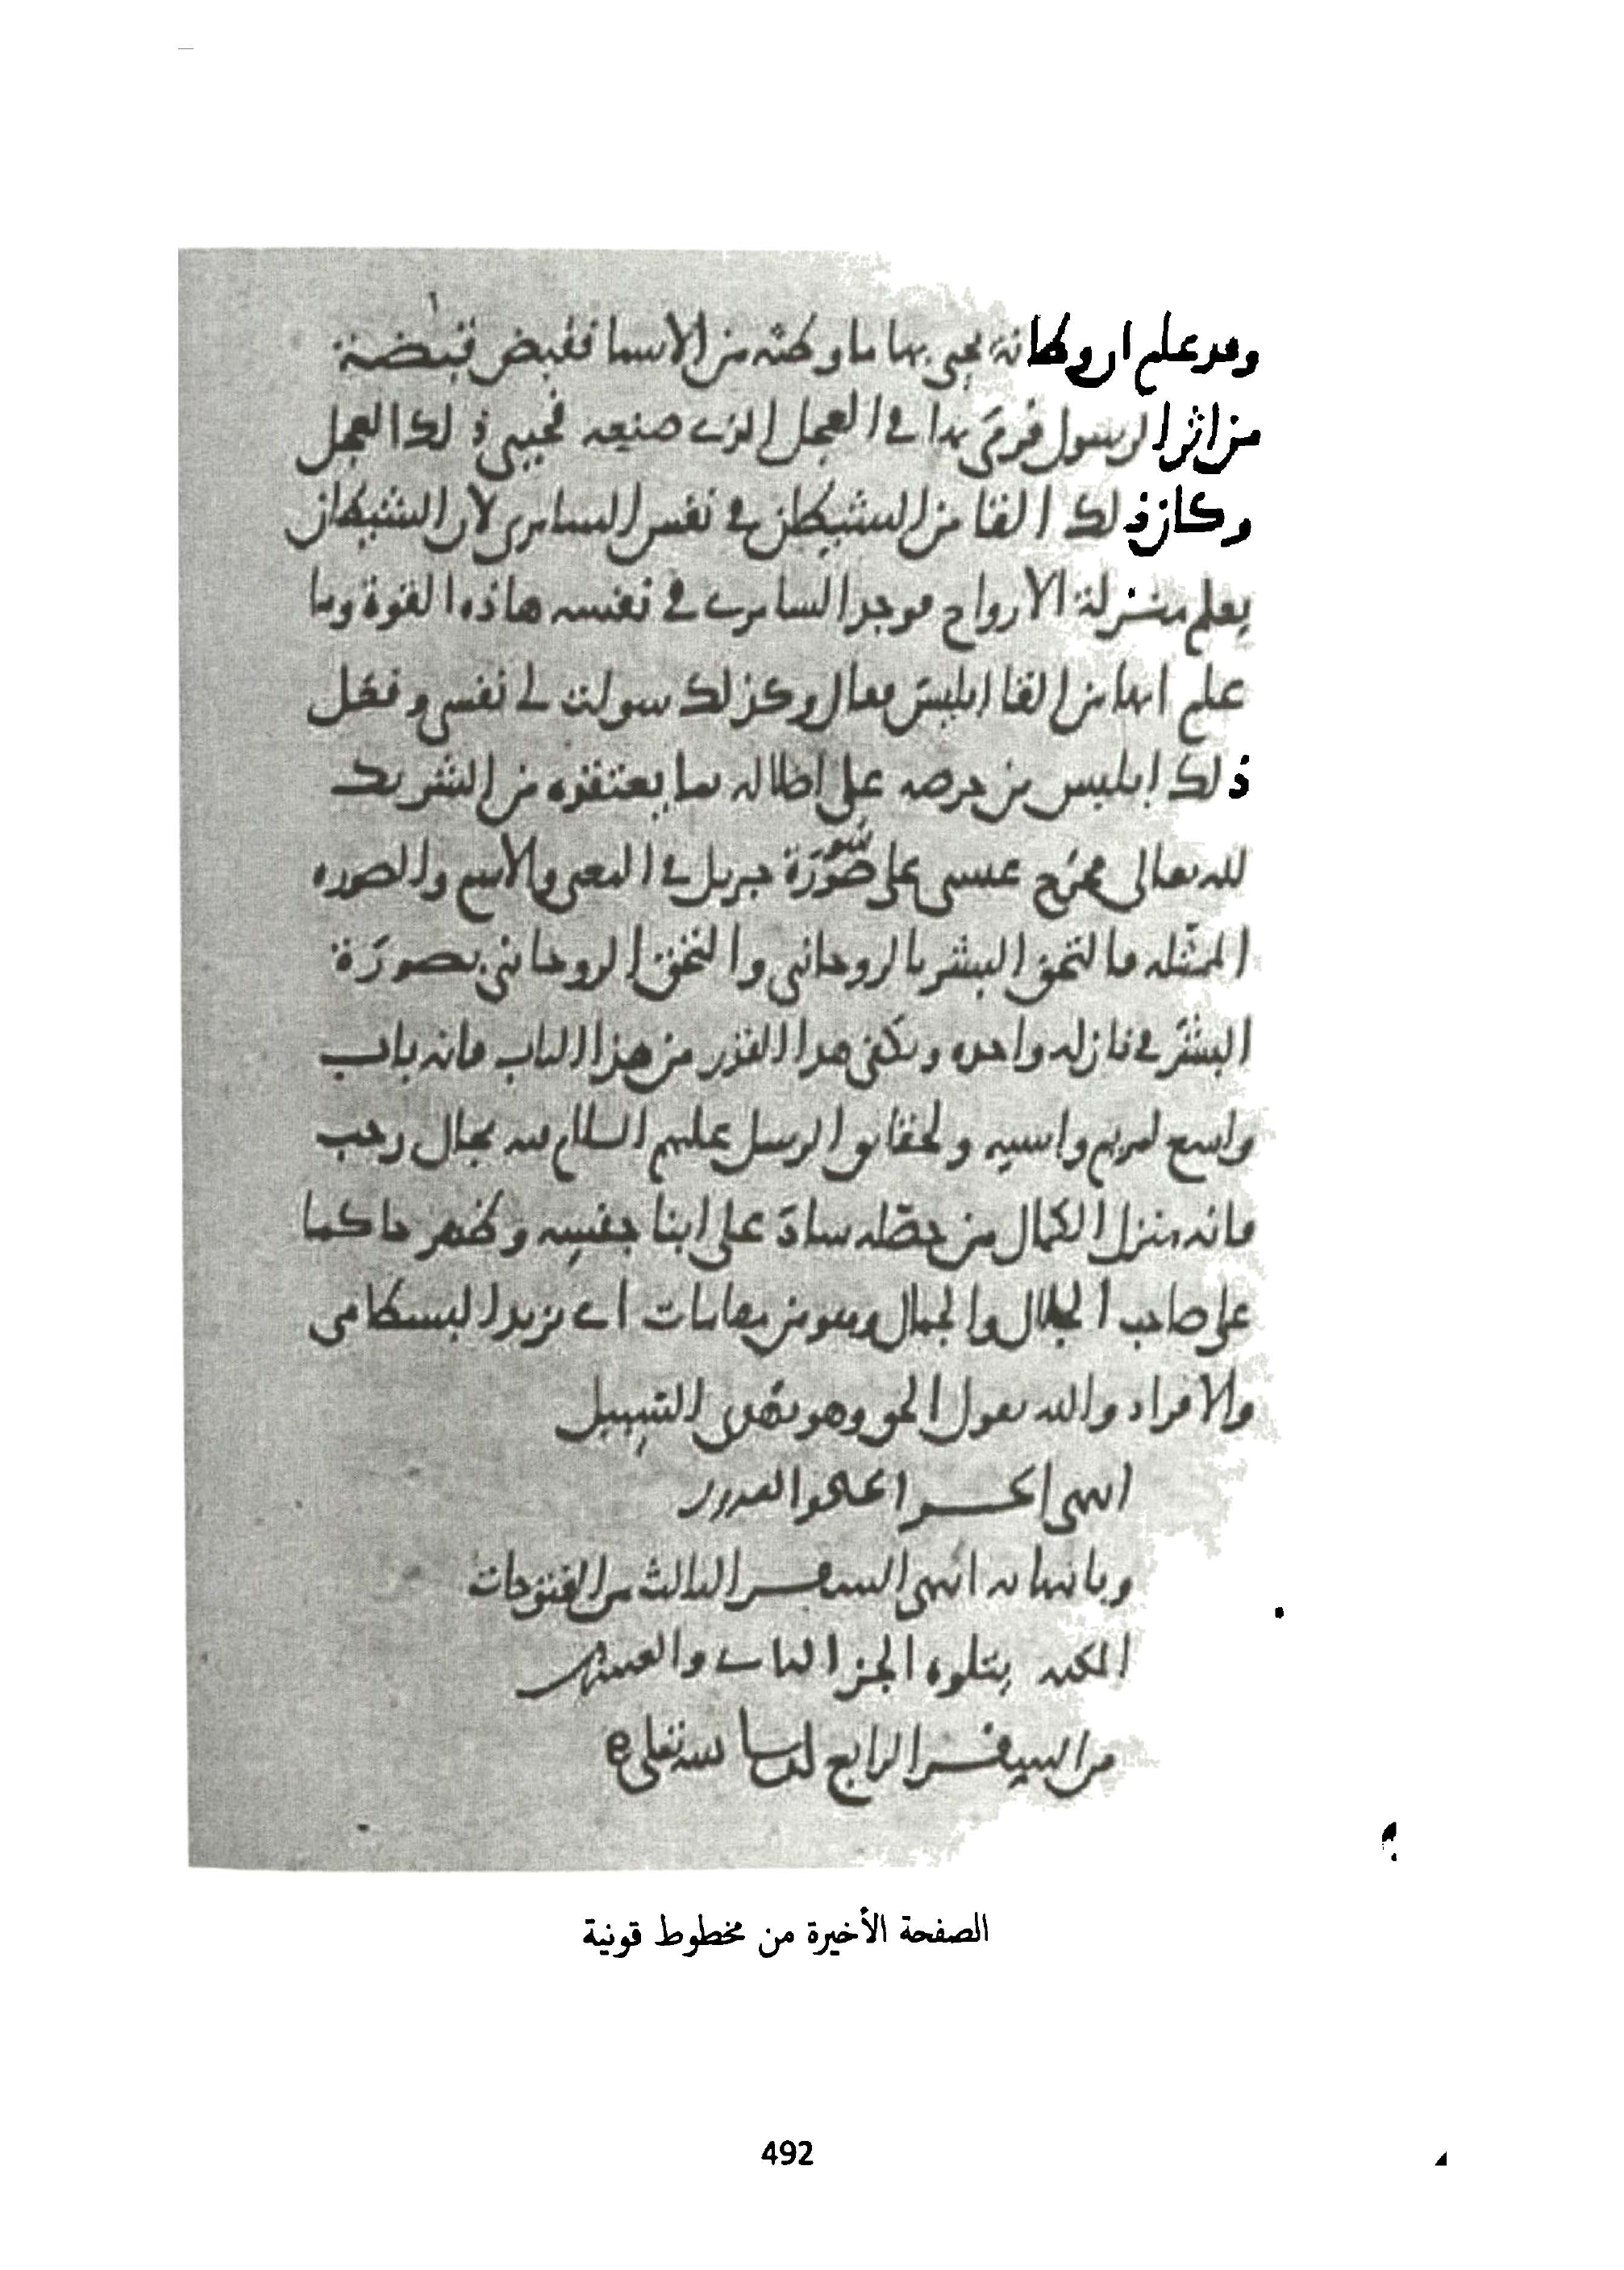 وقد علم ان وطاته يحيى بها ما وطئه من الاشيا فقبض قبضة
من اثر الرسول فرمى بها في العجل الذي صنعه فحيي ذلك العجل
وكان ذلك القا من الشيطان في نفس السامري لان الشيطان
يعلم منزلة الارواح فوجد السامري في نفسه هاذه القوة وما
علم انها من القا ابليس فقال وكذلك سولت لي نفسي وفعل
ذلك ابليس من حرصه على اضلاله بما يعتقده من الشريك
لله تعالى فخرج عيسى على صورة جبريل في المعنى والاسم والصورة
الممثلة فالتحق البشر بالروحاني والتحق الروحاني بصورة
البشر في نازلة واحدة ويكفي هذا القدر من هذا الباب فانه باب
واسع لمريم واسية ولحقائق الرسل عليهم السلام فيه مجال رحب
فانه منزل الكمال من حصله ساد على ابنا جنسه وظهر حاكما
على صاحب الجلال والجمال وهو من مقامات ابي يزيد البسطامي
والافراد والله يقول الحق وهو يهدي السبيل
انتهى الجزء الحادي والعشرون
وبانتهائه انتهى السفر الثالث من الفتوحات
المكية يتلوه الجز الثاني والعشرون
من السفر الرابع ان شا الله تعلى ه
الصفحة الأخيرة من مخطوط قونية
492